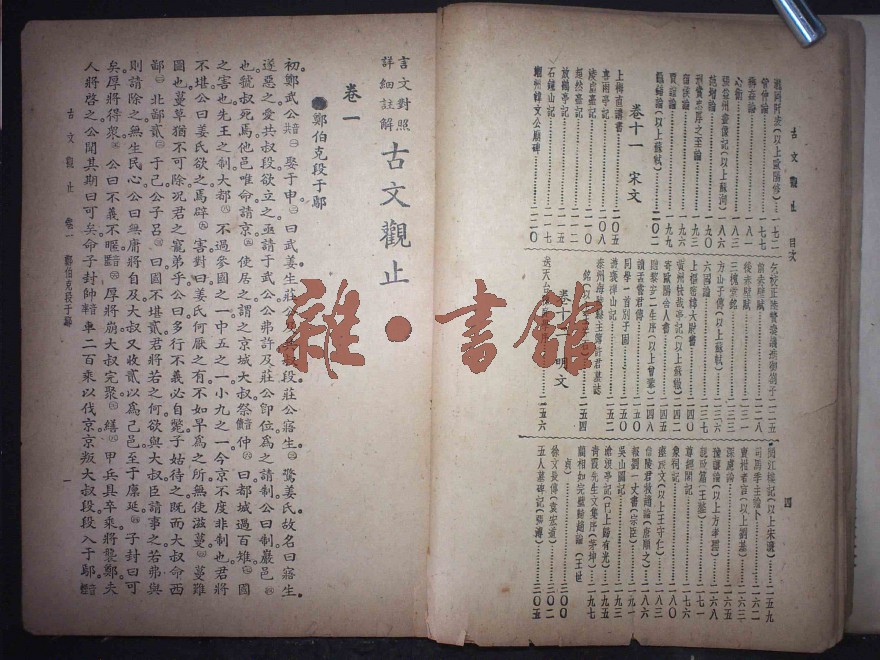 古文觀止 目次
瀧岡阡表(以上歐陽修)……一七二
管仲論……一七七
辨姦論……一八一
心術
張益州畫像記(以上蘇洵)
范增論
刑賞忠厚之至論……一九三
留侯論……一九六
賈誼論……一九九
鼂錯論(以上蘇軾)……二〇二
卷十一 宋文
上梅直講書……二〇五
喜雨亭記……二〇八
凌虛臺記
超然臺記
放鶴亭記
石鐘山記
潮州韓文公廟碑……二二〇
乞校正陸贄奏議進御劄子……二二五
前赤壁賦……二二八
後赤壁賦……二三一
三槐堂銘……二三三
方山子傳(以上蘇軾)……二三六
六國論……二三七
上樞密韓大尉書……二四〇
黃州快哉亭記(以上蘇轍)……二四二
寄歐陽舍人書
贈黎安二生序(以上曾鞏)……二四八
讀孟嘗君傳……二五〇
同學一首別子固
遊褒禪山記
泰州海陵縣主簿許君墓誌
銘
二五四
卷十 明文
送天台
二五六
閱江樓記(以上宋濂)……二五九
司馬季主論卜
賣柑者言(以上劉基)
深慮論
豫讓論(以上方孝孺)
親政篇(王鏊)
尊經閣記
象祠記
瘞旅文(以上王守仁)
信陵君救趙論(唐順之)
報劉一丈書(宗臣)
吳山圖記
滄浪亭記(已上歸有光)
青霞先生文集序(茅坤)……一九七
藺相如完璧歸趙論(王世
貞)……二〇〇
徐文長傳(袁宏道)……二〇二
五人墓碑記(張溥)……二〇五
四
言文對照
詳細註解
古文觀止
卷一
鄭伯克段于鄢
初鄭武公娶于申曰武姜生莊公
段莊公寤生驚姜氏故名曰寤生
遂惡之愛共叔段欲立之亟請于武公公弗許及莊公卽位為之請制公曰制巖邑
也虢叔死焉他邑唯命請京使居之謂之京城大叔祭仲曰都城過百雉國
之害也先王之制大都不過參國之一中五之一小九之一今京不度非制也君將
不堪公曰姜氏欲之焉辟害對曰姜氏何厭之有不如早為之所無使滋蔓蔓難
圖也蔓草猶不可除況君之寵弟乎公曰多行不義必自斃子姑待之既而大叔命西
鄙北鄙貳于己公子呂曰國不堪貳君將若之何欲與大叔臣請事之若弗與
則請除之無生民心公曰無庸將自及大叔又收貳以為己邑至于廩延子封曰可
矣厚將得眾公曰不義不暱厚將崩大叔完聚繕甲兵具卒乘將襲鄭夫
人將啓之公聞其期曰可矣命子封帥車二百乘以伐京京叛大叔段段入于鄢
古文觀止 卷一 鄭伯克段于鄢
一
雜·書館